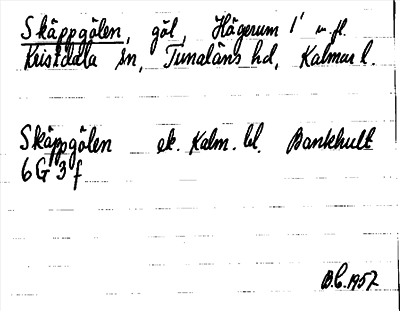 Skäppgölen, göl, Hägerum 1' m. fl.
Kristdala sn, Tunaläns hd, Kalmar l.
Skäppgölen ek. Kalm. bl. Bankhult
6 G 3 f
B.C. 1957